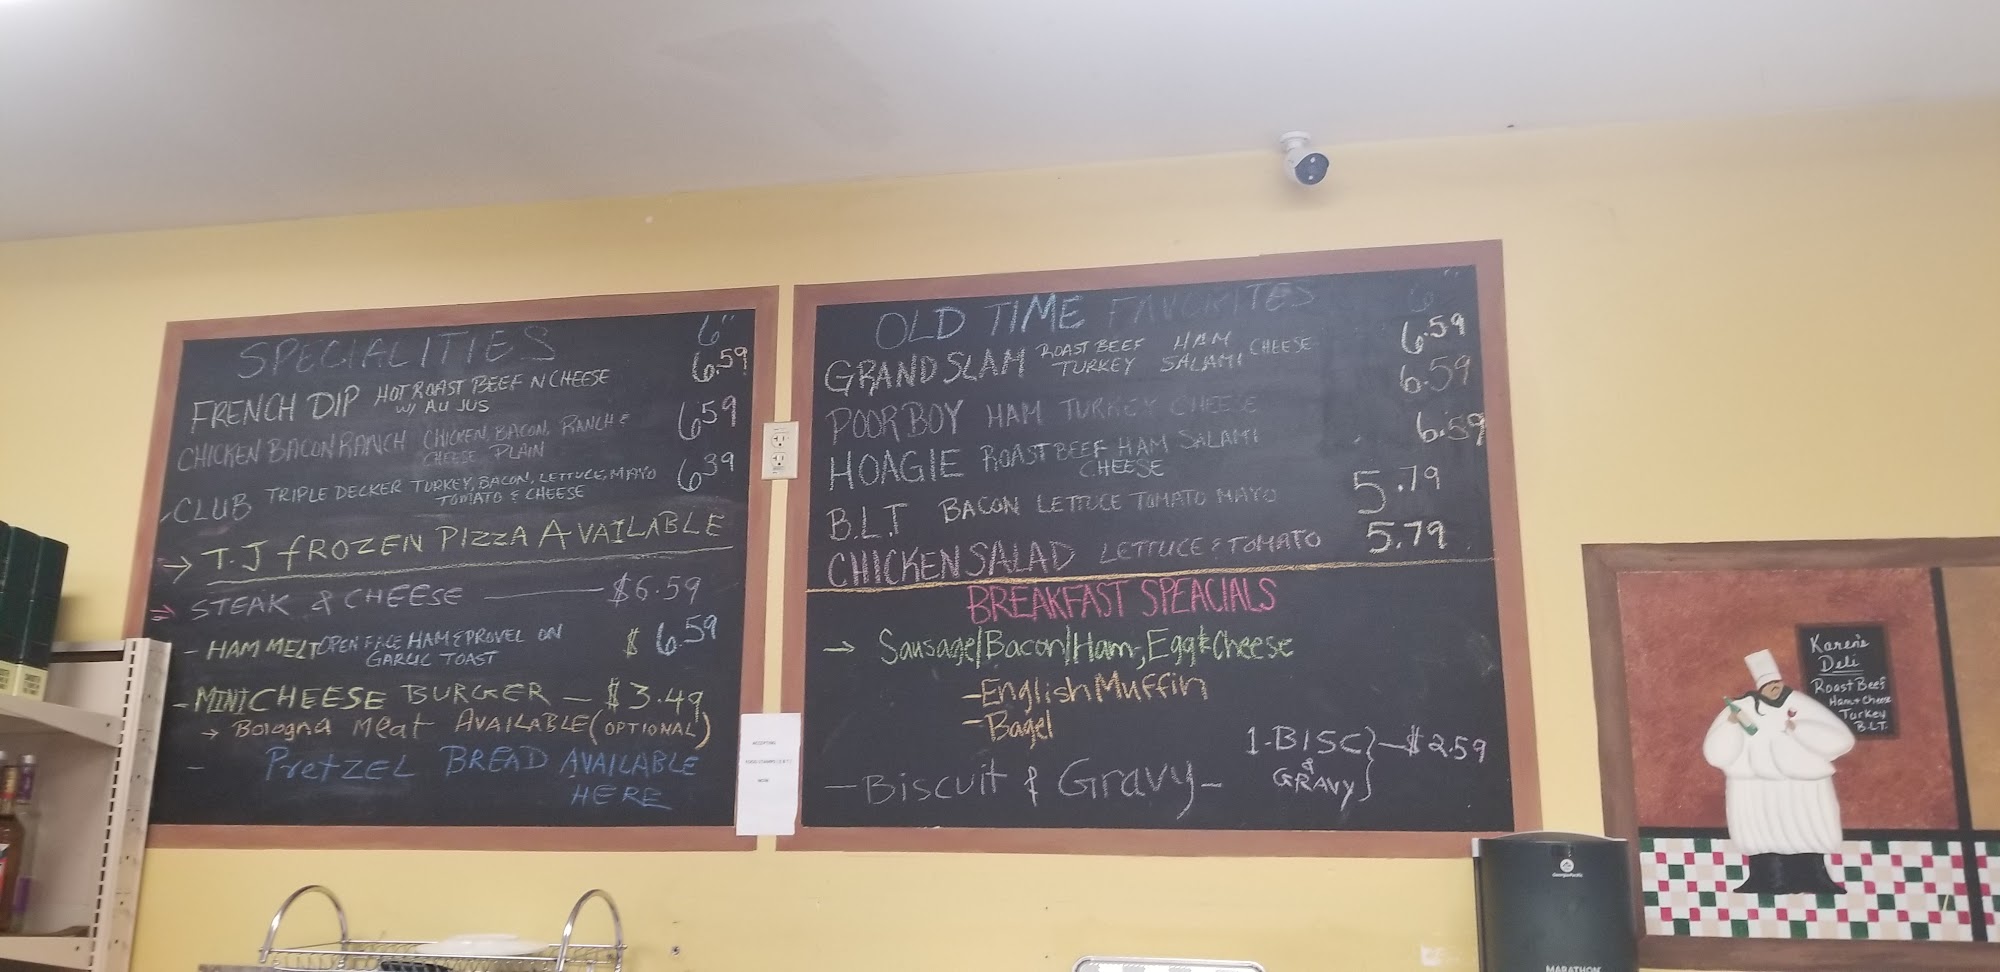 SPECIALITIES 6"
FRENCH DIP HOT ROAST BEEF N CHEESE 6.59
W/ AU JUS
CHICKEN BACON RANCH CHICKEN, BACON, RANCH & 6.59
CHEESE PLAIN
-CLUB TRIPLE DECKER TURKEY, BACON, LETTUCE, MAYO 6.39
TOMATO & CHEESE
→ T.J FROZEN PIZZA AVAILABLE
⇒ STEAK & CHEESE — $6.59
- HAM MELT OPEN FACE HAM & PROVEL ON $ 6.59
GARLIC TOAST
-MINI CHEESE BURGER — $3.49
→ Bologna Meat AVAILABLE (OPTIONAL)
- PretZEL BREAD AVAILABLE
HERE
OLD TIME FAVORITES 6"
GRAND SLAM ROAST BEEF HAM CHEESE 6.59
TURKEY SALAMI
POOR BOY HAM TURKEY CHEESE 6.59
HOAGIE ROAST BEEF HAM SALAMI 6.59
CHEESE
B.L.T BACON LETTUCE TOMATO MAYO 5.79
CHICKEN SALAD LETTUCE & TOMATO 5.79
BREAKFAST SPEACIALS
→ Sausage/Bacon/Ham, Egg & Cheese
-English Muffin
-Bagel
-Biscuit & Gravy- 1-BISC & GRAVY } — $2.59
ACCEPTING
NOW
Karen's
Deli
Roast Beef
Ham + Cheese
Turkey
B.L.T.
GeorgiaPacific
MARATHON